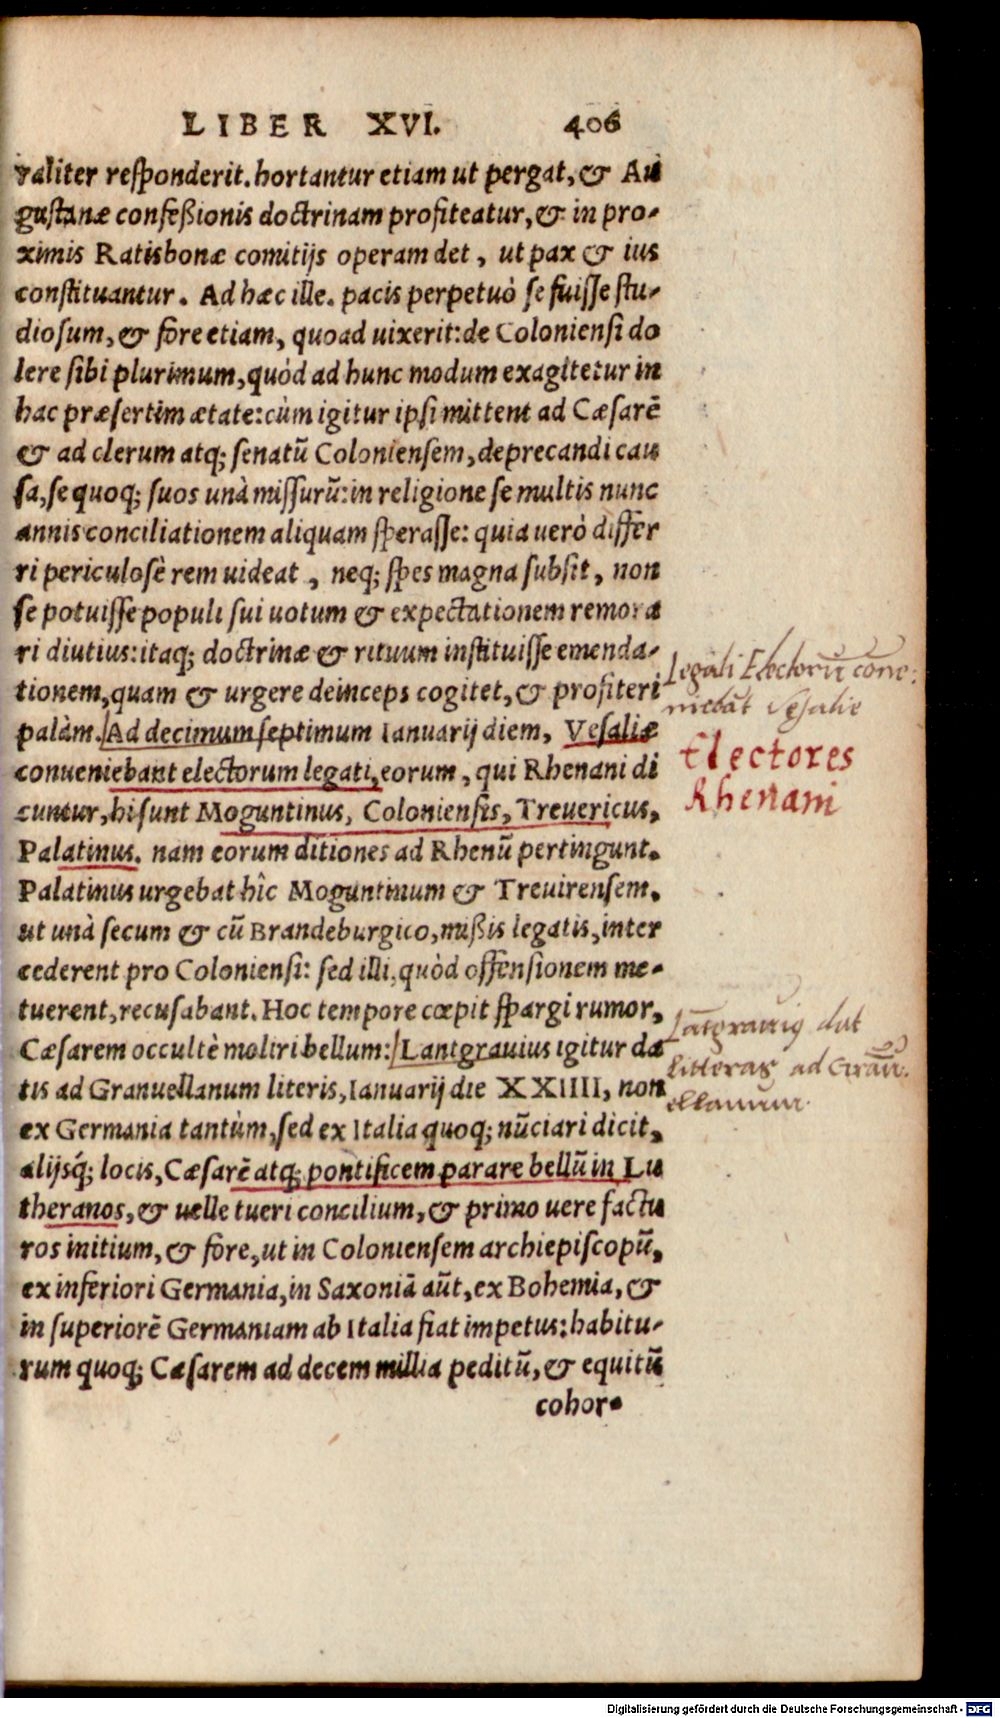 LIBER XVI. 406
raliter responderit. hortantur etiam ut pergat, & Au
gustanæ confeßionis doctrinam profiteatur, & in pro-
ximis Ratisbonæ comitijs operam det, ut pax & ius
constituantur. Ad hæc ille. pacis perpetuò se fuisse stu-
diosum, & fore etiam, quoad uixerit: de Coloniensi do
lere sibi plurimum, quòd ad hunc modum exagitetur in
hac præsertim ætate: cùm igitur ipsi mittent ad Cæsarē
& ad clerum atq; senatū Coloniensem, deprecandi cau
sa, se quoq; suos unà missurū: in religione se multis nunc
annis conciliationem aliquam sperasse: quia uerò differ
ri periculosè rem uideat, neq; spes magna subsit, non
se potuisse populi sui uotum & expectationem remora
ri diutius: itaq; doctrinæ & rituum instituisse emenda-
tionem, quam & urgere deinceps cogitet, & profiteri
palàm. Ad decimum septimum Ianuarij diem, Vesaliæ
conueniebant electorum legati, eorum, qui Rhenani di
cuntur, hi sunt Moguntinus, Coloniensis, Treuericus,
Palatinus. nam eorum ditiones ad Rhenū pertingunt.
Palatinus urgebat hîc Moguntinum & Treuirensem,
ut unà secum & cū Brandeburgico, mißis legatis, inter
cederent pro Coloniensi: sed illi, quòd offensionem me-
tuerent, recusabant. Hoc tempore cœpit spargi rumor,
Cæsarem occultè moliri bellum: Lantgrauius igitur da
tis ad Granuellanum literis, Ianuarij die XXIIII, non
ex Germania tantùm, sed ex Italia quoq; nūciari dicit,
alijsq́; locis, Cæsarē atq; pontificem parare bellū in Lu
theranos, & uelle tueri concilium, & primo uere factu
ros initium, & fore, ut in Coloniensem archiepiscopū,
ex inferiori Germania, in Saxoniā aūt, ex Bohemia, &
in superiorē Germaniam ab Italia fiat impetus: habitu-
rum quoq; Cæsarem ad decem millia peditū, & equitū
cohor-
Legati Electorū conve:
niebāt Vesalie
Electores
Rhenani
Lātgrauiꝰ dat
litteras ad Grāu:
ellanum.
Digitalisierung gefördert durch die Deutsche Forschungsgemeinschaft - DFG